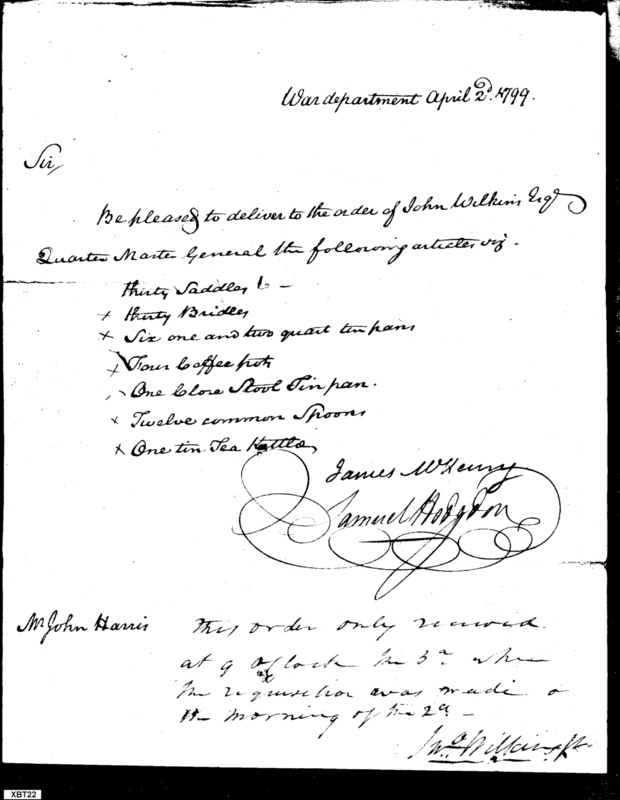 War department April 2d. 1799.
Sir,
Be pleased to deliver to the order of John Wilkins Esqr
Quarter Master General the following articles viz.
thirty Saddles
x thirty Bridles
x Six one and two quart tin pans
x Four Coffee pots
One Close Stool Tin pan.
x Twelve common Spoons
x One tin Tea Kettle,
James McHenry
Samuel Hodgdon
Mr John Harris
This order only received
at 9 oClock the 3d when
the requisition was made o
the morning of the 2d -
Jno Wilkins Jr.
XBT22